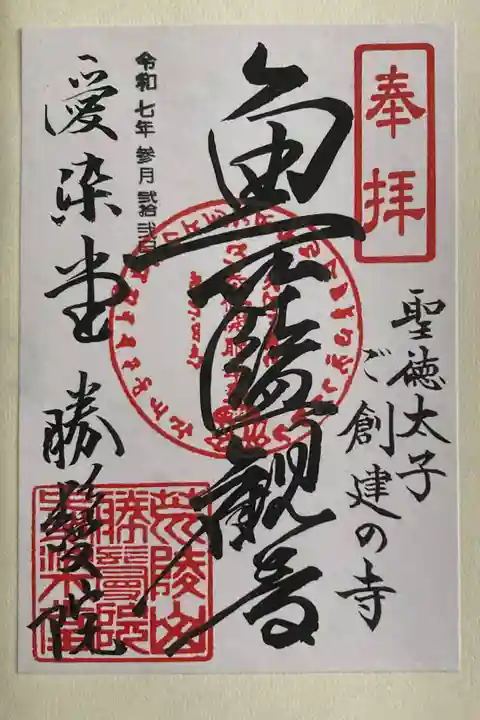 奉拝
聖徳太子
ご創建の寺
魚籃観音
令和七年参月弐拾弐日
愛染堂勝鬘院
荒陵山
勝鬘院
愛染堂